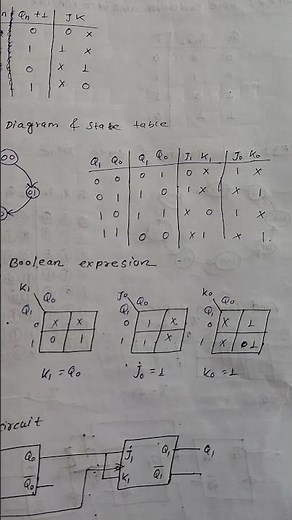 n Qn+1 J K
0 0 x
1 1 x
0 x 1
1 x 0
Diagram & State table
00
01
Q1 Q0 Q1 Q0 J1 K1 J0 K0
0 0 0 1 0 x 1 x
0 1 1 0 1 x x 1
1 0 1 1 x 0 1 x
1 1 0 0 x 1 x 1.
Boolean expresion
K1 Q0 Q1 0 x x 1 0 1
J0 Q0 Q1 0 1 x 1 1 x
K0 Q0 Q1 0 x 1 1 x 1
K1 = Q0 J0 = 1 K0 = 1
circuit
Q0 J1 Q1 Q1
Q̅0 K1 Q̅1